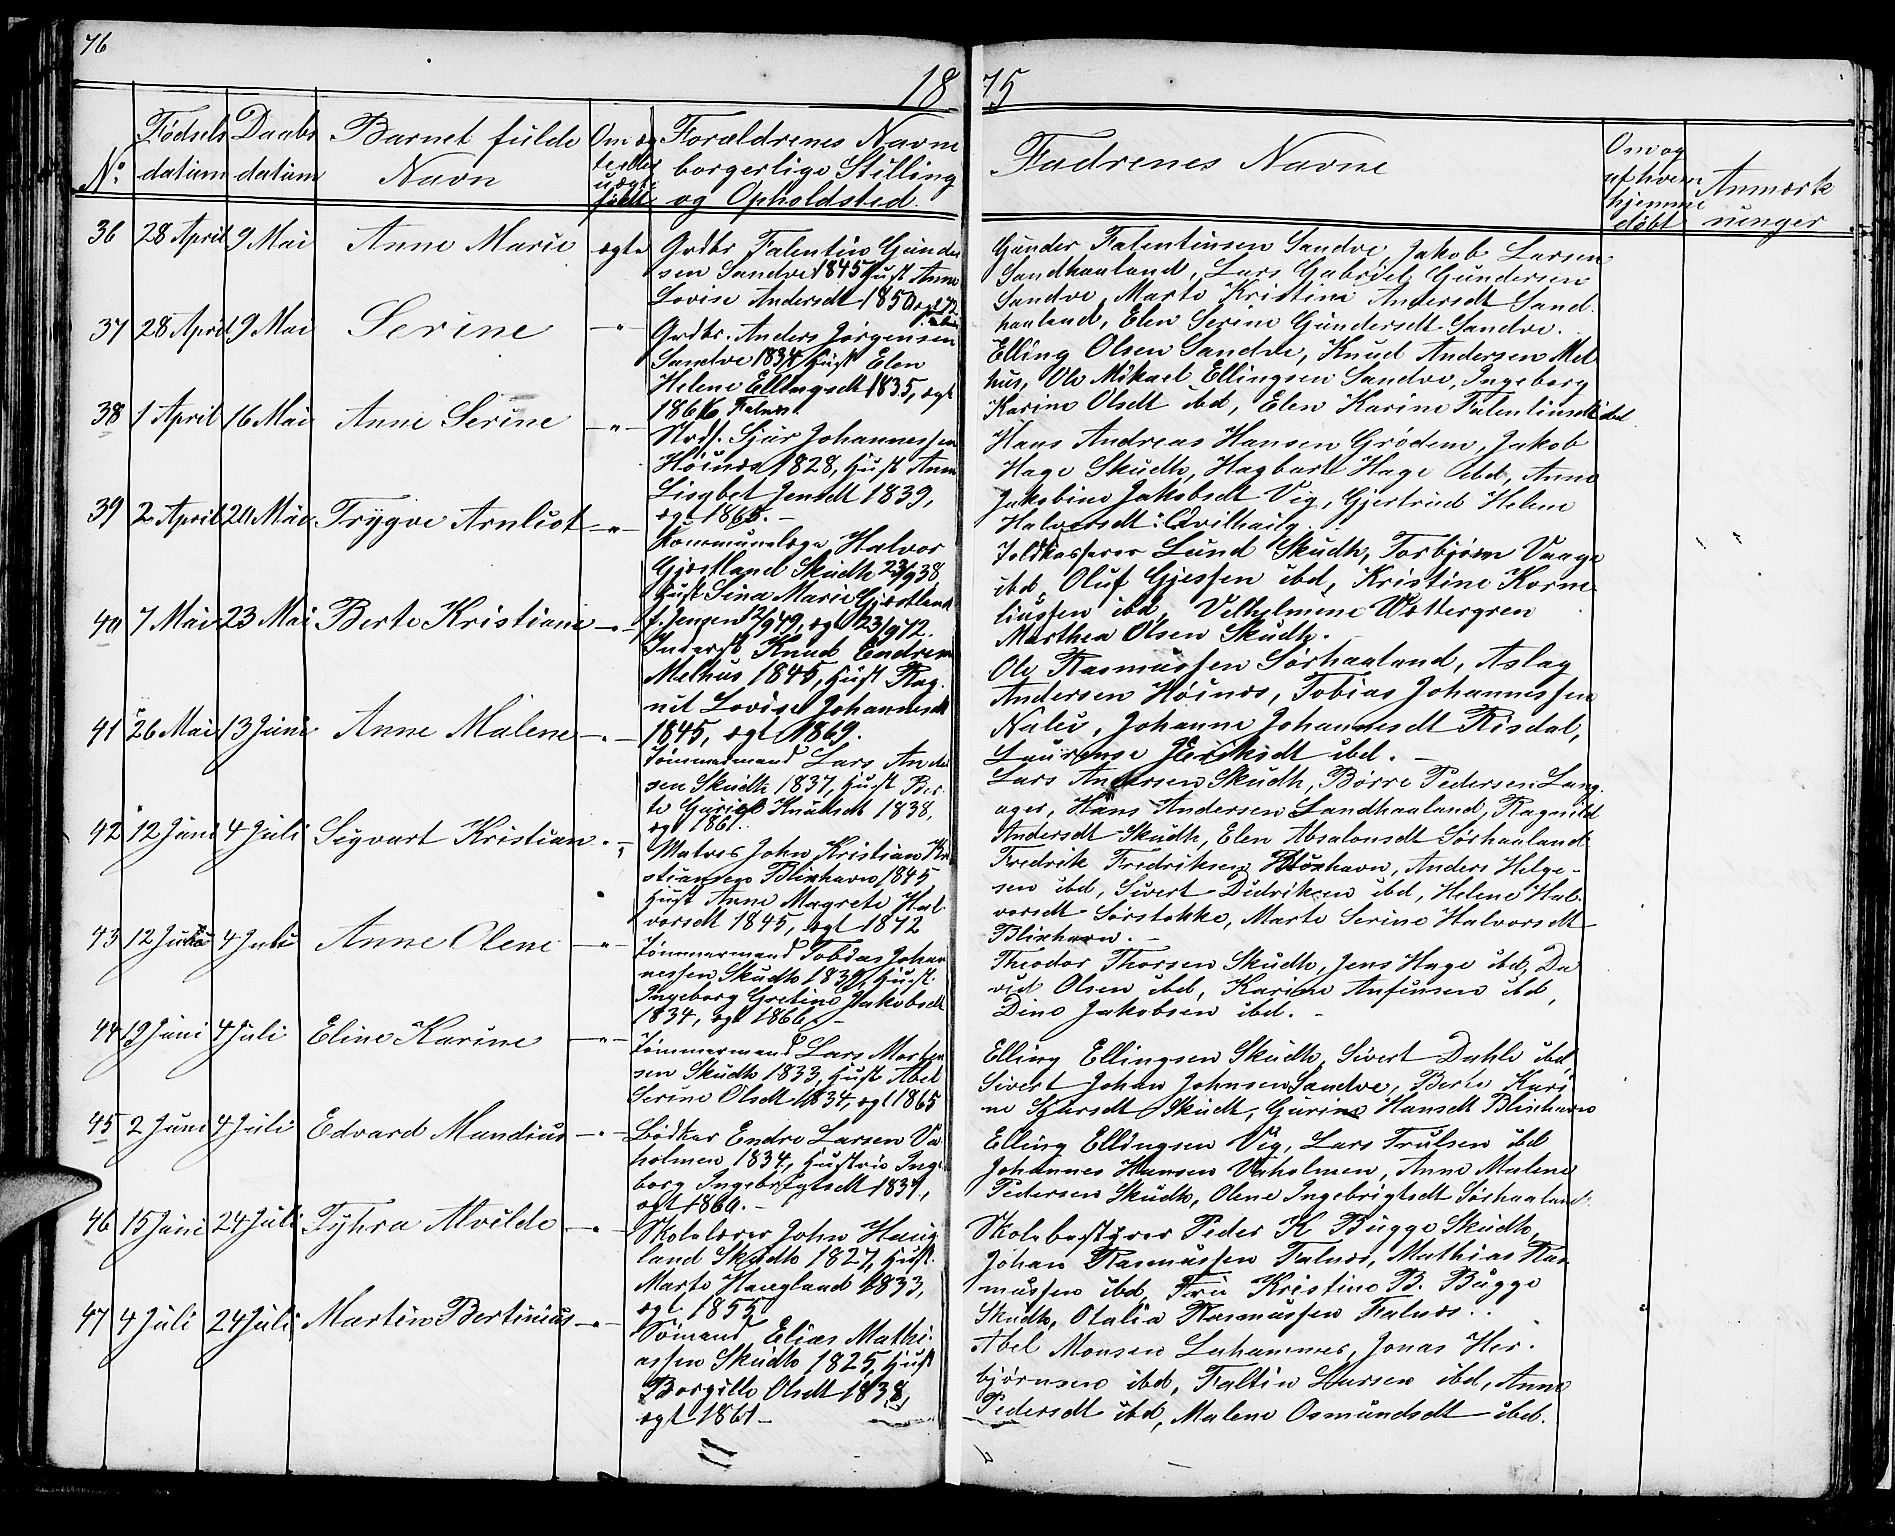 76
18 75
No. Fødsels datum Daabs datum Barnet fulde Navn Om ægte eller uægte født Forældrenes Navne borgerlige Stilling og Opholdsted Fadrenes Navne Om og af hvem hjemmedøbt Anmærkninger
36 28 April 9 Mai Anne Marie ægte
Grdbr Falentin Gunder
sen Sandve 1845 Hust Anne
Lovise Andersdt 1850 ægt 72
Gunder Falentinsen Sandve, Jakob Larsen
Sandhaaland, Lars Gabriel Gundersen
Sandve, Marte Kristine Andersdt Sand
haaland, Elen Serine Gundersdt Sandve.
37 28 April 9 Mai Serine -"-
Grdbr. Anders Jørgensen
Sandve 1834, Hust Elen
Helene Ellingsdt 1835, ægt
1866 Falnæs
Elling Olsen Sandve, Knud Andersen Mel
hus, Ole Mikael Ellingsen Sandve, Ingeborg
Karine Olsdt ibd, Elen Karine Falentinsdt ibd
38 1 April 16 Mai Anne Serine -"-
Husf. Sjur Johannessen
Høinæs 1828, Hust Anne
Lisabet Jensdt 1839,
ægt 1865.-
Hans Andreas Hansen Grødem, Jakob
Hage Skudh, Hagbart Hage ibd, Anne
Jakobine Jakobsdt Vig, Gjertrud Helene
Halvorsdt Qvilhaug.
39 2 April 20 Mai Trygve Arnliot -"-
Kommunelæge Halvor
Gjøstland Skudh 23/9 38,
Hust Sina Marie Gjøstland
f. Jensen 12/9 49, ægt 23/9 72.
Toldkasserer Lund Skudh, Torbjørn Vaage
ibd, Oluf Gjessen ibd, Kristine Korne
liussen ibd, Velhelmine Wettergren
Marthea Olsen Skudh.-
40 7 Mai 23 Mai Berte Kristiane -"-
Inderst Knud Endresen
Melhus 1845, Hust Rag
nil Lovise Johannesdt
1845, ægt 1869.
Ole Rasmussen Sørhaaland, Aslag
Andersen Høinæs, Tobias Johannessen
Nalei, Johanne Johannesdt Risdal,
Laurense ibd.-
41 26 Mai 13 Juni Anne Malene -"-
Tømmermand Lars Ander
sen Skudh 1837, Hust Ber
te Gurine Knudsdt 1838,
ægt 1861.
Lars Andersen Skudh, Børre Pedersen Lang
ager, Hans Andersen Sandhaaland, Ragnild
Andersdt Skudh, Elen Absalonsdt Sørhaaland
42 12 Juni 4 Juli Sigvart Kristian -"-
Matros John Kristian Kri
stiansen Blixhavn 1845
Hust Anne Magrete Hal
vorsdt 1845, ægt 1872
Fredrik Fredriksen Blixhavn, Anders Helge-
sen ibd, Sivert Didriksen ibd, Helene Hal
vorsdt Sørstokke, Marte Serine Halvorsdt
Blixhavn.-
43 12 Juni 4 Juli Anne Olene -"-
Tømmermand Tobias Johan
nessen Skudh 1839, Hust.
Ingeborg Gretine Jakobsdt
1834, ægt 1866.-
Theodor Thorsen Skudh, Jens Hage ibd, Da
vid Olsen ibd, Karine Anfinsen ibd,
Dine Jakobsen ibd.-
44 19 Juni 4 Juli Eline Karine -"-
Tømmermand Lars Morten
sen Skudh 1833, Hust Abel
Serine Olsdt 1834, ægt 1865
Elling Ellingsen Skudh, Sivert Dahle ibd,
Sivert Johan Johnsen Sandve, Berte Kari
ne Sjursdt Skudh, Gurine Hansdt Blixhavn
45 2 Juni 4 Juli Edvard Mandius -"-
Bødker Endre Larsen Va
holmen 1834, Hustrue Inge
borg Ingebrigtsdt 1837,
ægt 1860.-
Elling Ellingsen Vig, Lars Trulsen ibd
Johannes Hansen Vaholmen, Anne Malene
Pedersen Skudh, Olene Ingebrigtsdt Sørhaaland.
46 15 Juni 24 Juli Tyhra Alvilde -"-
Skolelærer John Haug
land Skudh 1827, Hust.
Marte Haugland 1833,
ægt 1855
Skolebestyrer Peder K Bugge Skudh,
Johan Rasmussen Falnæs, Mathias Ras
mussen ibd, Fru Kristine B. Bugge
Skudh, Otalia Rasmussen Falnæs.
47 4 Juli 24 Juli Martin Bertinius -"-
Sømand Elias Mathi
assen Skudh 1825, Hust
Borgille Olsdt 1838,
ægt 1861-
Abel Monsen Lahammer, Jonas Her-
bjørnsen ibd, Faltin Larsen ibd, Anne
Pedersdt ibd, Malene Osmundsdt ibd.